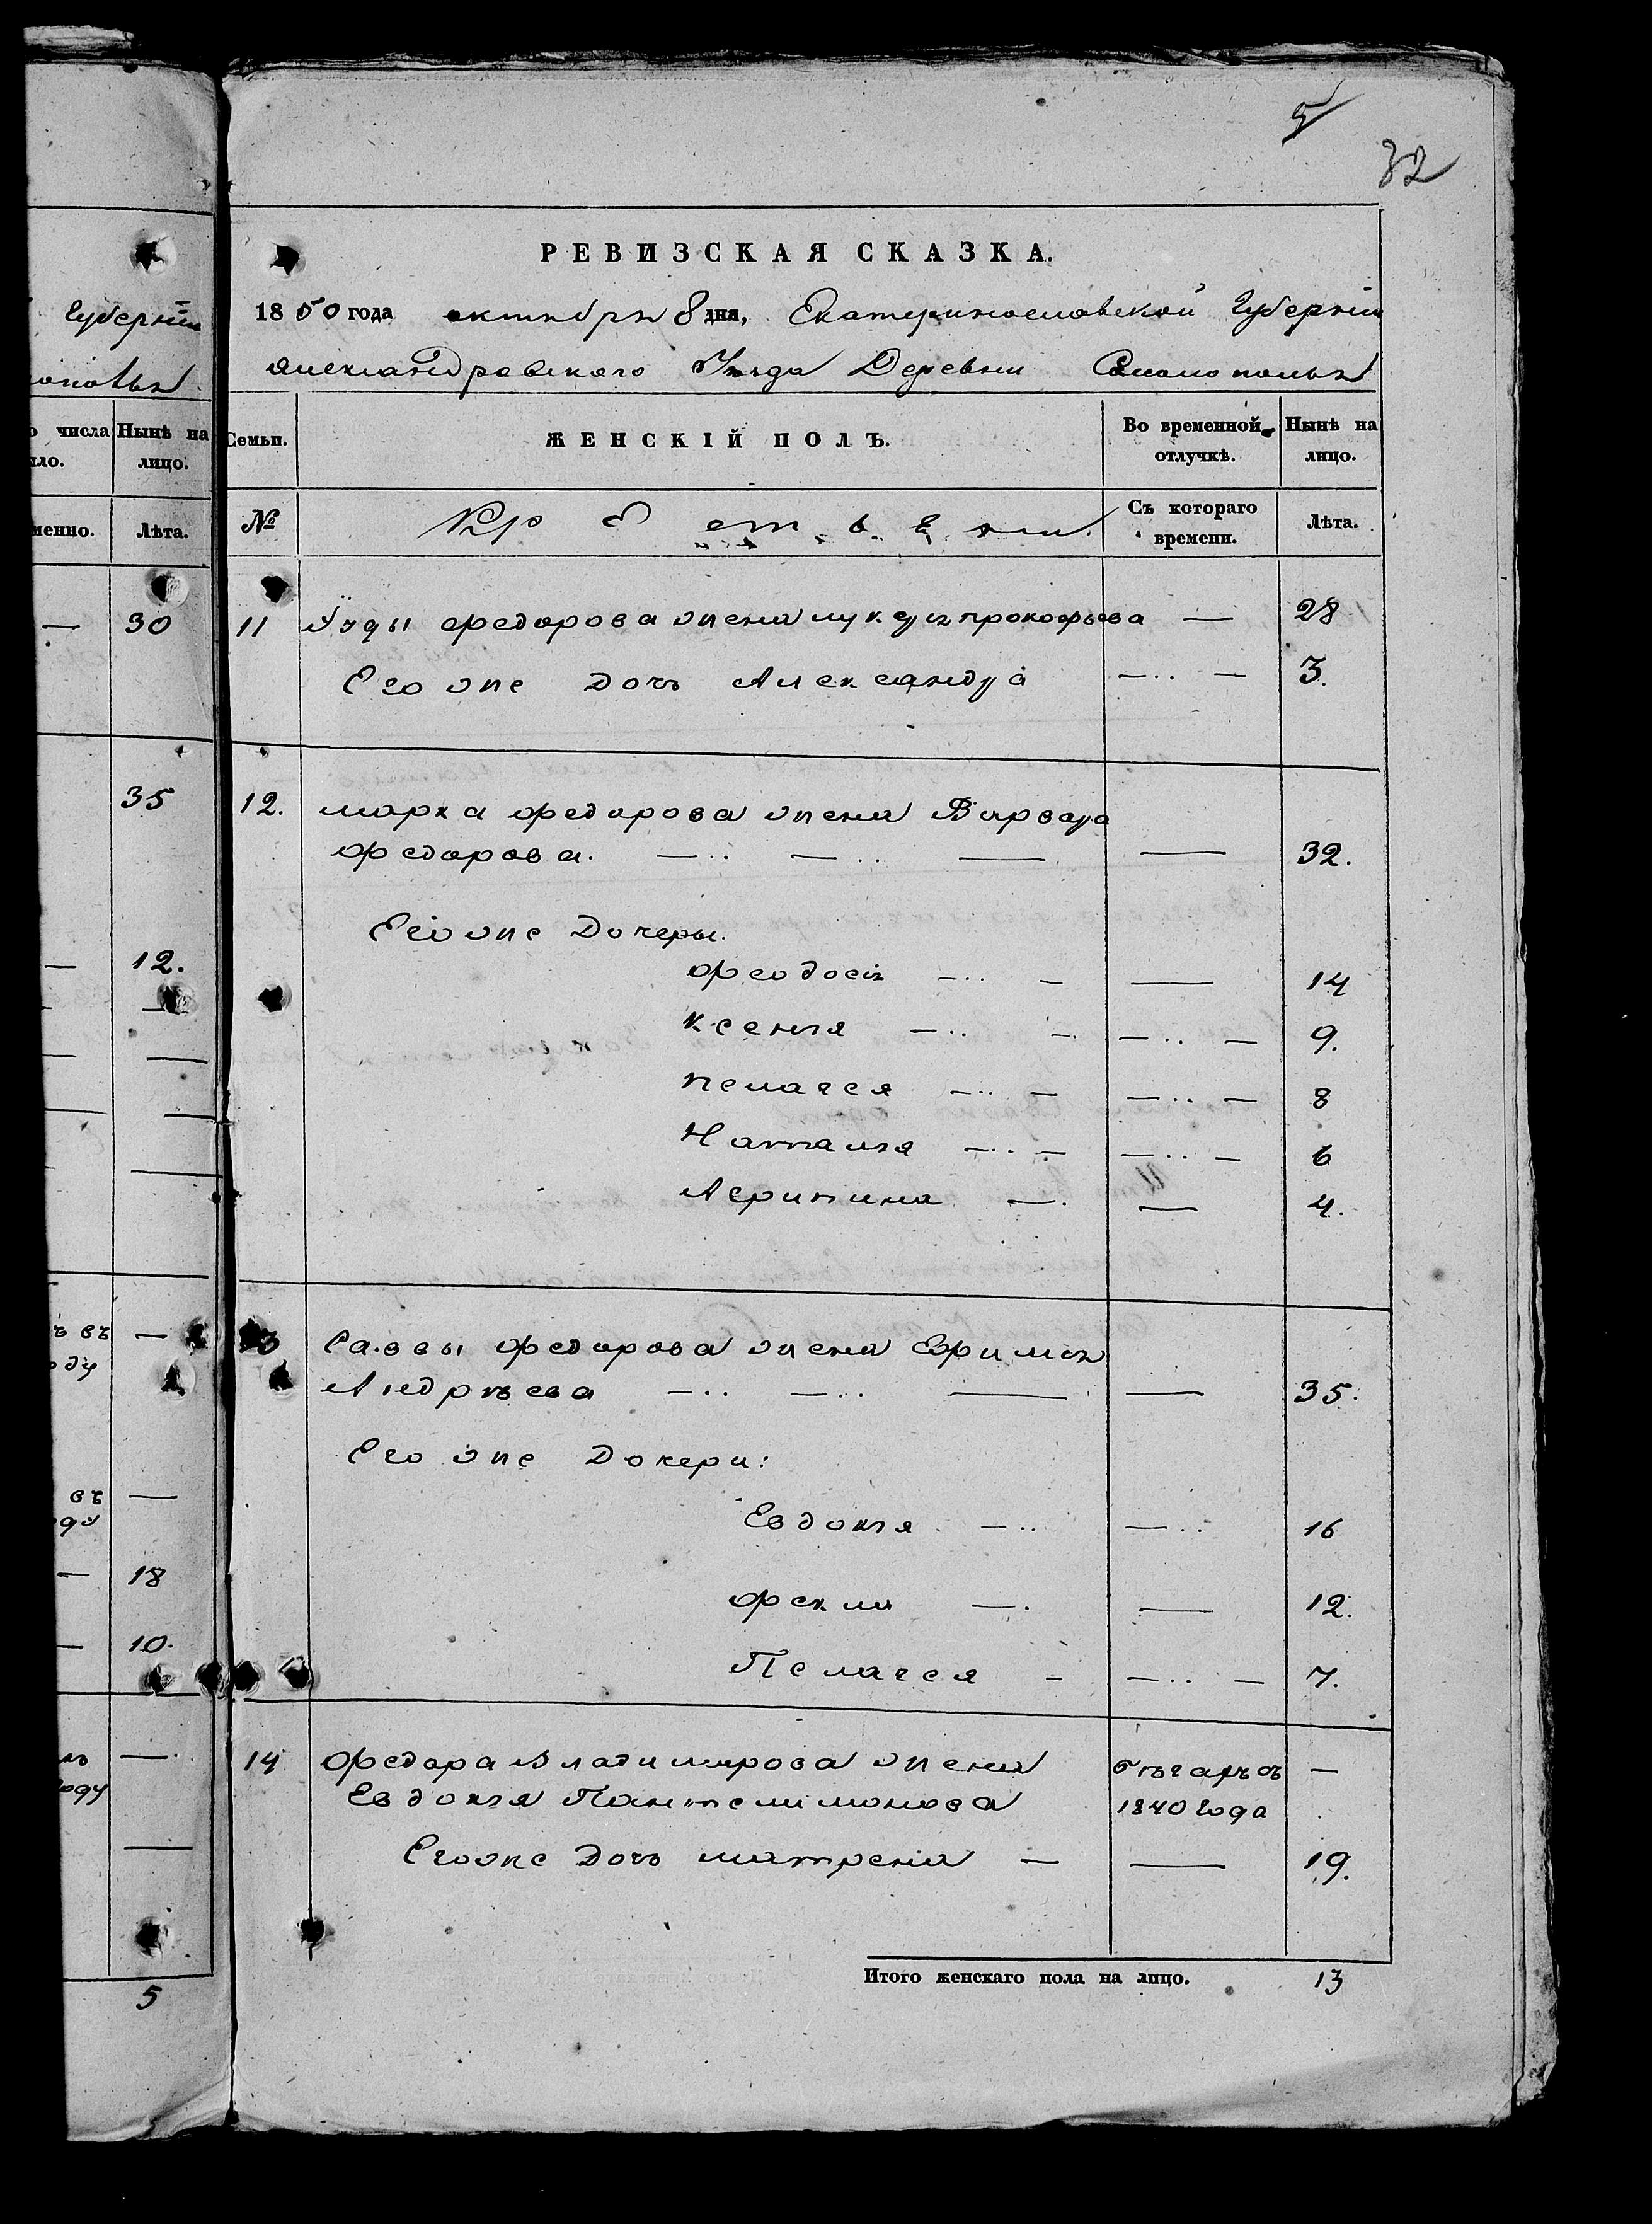 5
32
Губерніи
Нынѣ на
лицо.
Лѣта.
30
35
12.
въ
18
10.
5
РЕВИЗСКАЯ СКАЗКА.
1850 года октября 8 дня, Екатеринославской Губерніи
Александровского Уезда Деревни
Семьи. ЖЕНСКІЙ ПОЛЪ. Во временной отлучкѣ. Нынѣ на лицо.
№ Крестьяни Съ котораго времени. Лѣта.
11 федорова жена прокофьева — 28
Его же дочь Александра — 3.
12. марка федорова жена Варвара
федорова. — 32.
Его же Дочеры.
феодосія — 14
ксенія — 9.
пелагея — 8
Наталія — 6
Агрипина — 4.
13 Саввы федорова жена Ефимія
Андрѣева — 35.
Его же Дочери:
Евдокія — 16
фекла — 12.
Пелагея — 7.
14 федора Владимирова жена бѣгахъ съ —
Евдокія Пантелимонова 1840 года
Его же дочь матрена — 19.
Итого женскаго пола на лицо. 13